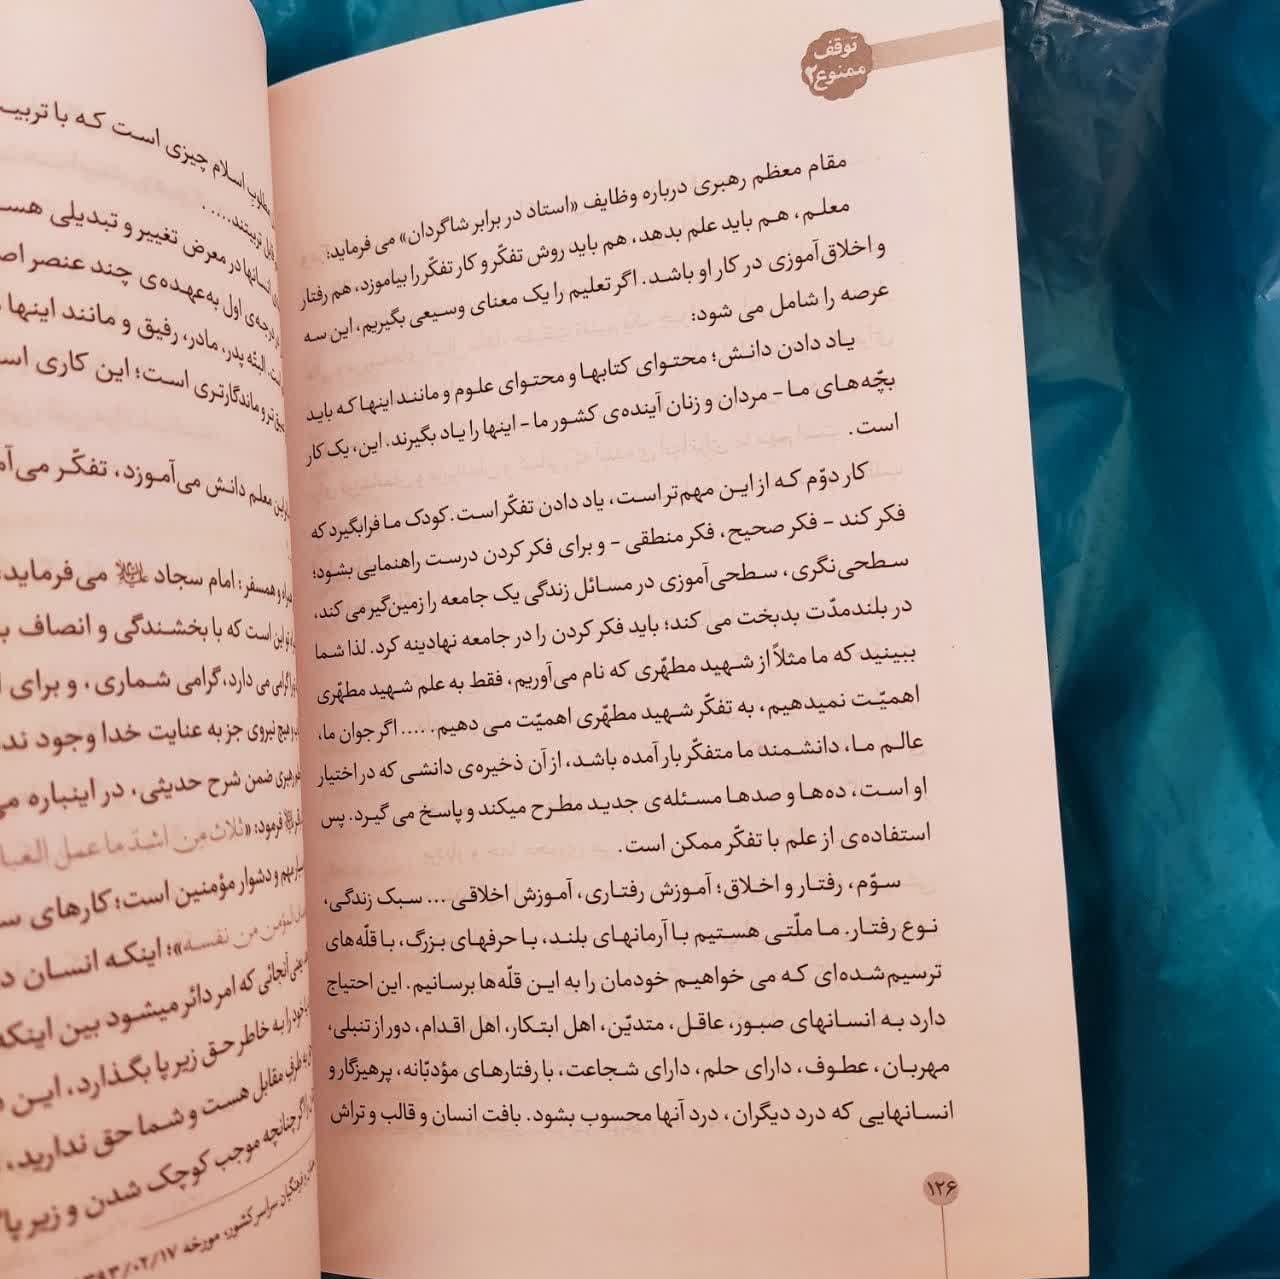 توقف
ممنوع ۲
مقام معظم رهبری درباره وظایف «استاد در برابر شاگردان» می فرماید:
معلـم، هـم باید علم بدهد، هم باید روش تفکّر و کار تفکّر را بیاموزد، هم رفتار
و اخلاق‌آموزی در کار او باشـد. اگر تعلیم را یک معنای وسیعی بگیریم، این سه
عرصه را شامل می شود:
یـاد دادن دانـش؛ محتـوای کتابهـا و محتـوای علـوم و ماننـد اینهـا کـه بایـد
بچّه‌هـای مـا - مردان و زنان آینده‌ی کشور ما - اینها را یـاد بگیرند. این، یک کار
است.
کار دوّم کـه از ایـن مهم‌تر اسـت، یاد دادن تفکّر اسـت. کودک مـا فرابگیرد که
فکر کند - فکر صحیح، فکر منطقی - و برای فکر کردن درست راهنمایی بشود؛
سـطحی‌نگری، سـطحی‌آموزی در مسـائل زندگی یک جامعه را زمین‌گیر می کند،
در بلندمدّت بدبخت می کند؛ باید فکر کردن را در جامعه نهادینه کرد. لذا شـما
ببینید که ما مثلاً از شـهید مطهّری که نام می‌آوریم، فقط به علم شـهید مطهّری
اهمیّـت نمیدهیم، به تفکّر شـهید مطهّری اهمیّت مـی دهیم. .... اگر جوان ما،
عالـم مـا، دانشـمند ما متفکّر بار آمده باشد، از آن ذخیره‌ی دانشی که در اختیار
او اسـت، ده‌ها و صدها مسـئله‌ی جدید مطرح میکند و پاسخ می گیرد. پس
استفاده‌ی از علم با تفکّر ممکن است.
سـوّم، رفتـار و اخـلاق؛ آمـوزش رفتـاری، آمـوزش اخلاقـی ... سـبک زندگـی،
نـوع رفتـار. مـا ملّتـی هسـتیم بـا آرمانهـای بلنـد، بـا حرفهای بـزرگ، بـا قلّه‌های
ترسیم‌شده‌ای کـه می خواهیم خودمان را به این قلّه‌ها برسانیم. این احتیاج
دارد بـه انسـانهای صبور، عاقل، متدیّن، اهل ابتکار، اهل اقدام، دور از تنبلی،
مهربان، عطـوف، دارای حلم، دارای شـجاعت، با رفتارهای مؤدّبانه، پرهیزگار و
انسـانهایی که درد دیگران، درد آنها محسوب بشود. بافت انسان و قالب و تراش
۱۲۶
مطلوب اسلام چیزی است که با
تربیتند.....
انسانها در معرض تغییر و تبدیلی
درجه‌ی اول به عهده‌ی چند عنصر
البتّه پدر، مادر، رفیق و مانند اینها
و ماندگارتری است؛ این کاری
معلم دانش می‌آموزد، تفکّر
و همسفر: امام سجاد علیه‌السلام می‌فرماید:
این است که با بخشندگی و انصاف
گرامی می دارد، گرامی شماری، و برای
هیچ نیروی جز به عنایت خدا وجود
رهبری ضمن شرح حدیثی، در اینباره
فرمود: «ثلاث مِن اشدّ ما عمل
و دشوار مؤمنین است؛ کارهای
المؤمن من نفسه»؛ اینکه انسان
یعنی آنجائی که امر دائر میشود بین اینکه
خود را به خاطر حق زیر پا بگذارد، این
طرف مقابل هست و شما حق ندارید،
اگر چنانچه موجب کوچک شدن و زیر
فرهنگیان سراسر کشور، مورخه ۱۳۹۳/۰۲/۱۷